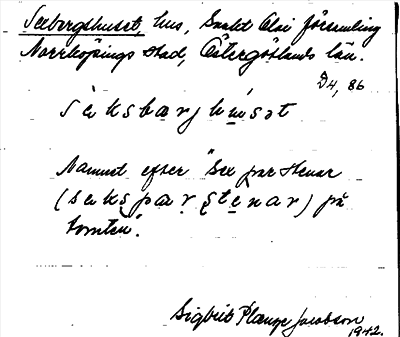 Seebergshuset, hus, Sankt Olai församling
Norrköpings stad, Östergötlands län.
D4, 86
Namnet efter "sex par stenar
på
tomten".
Sigbrit Plænge Jacobson
1942.